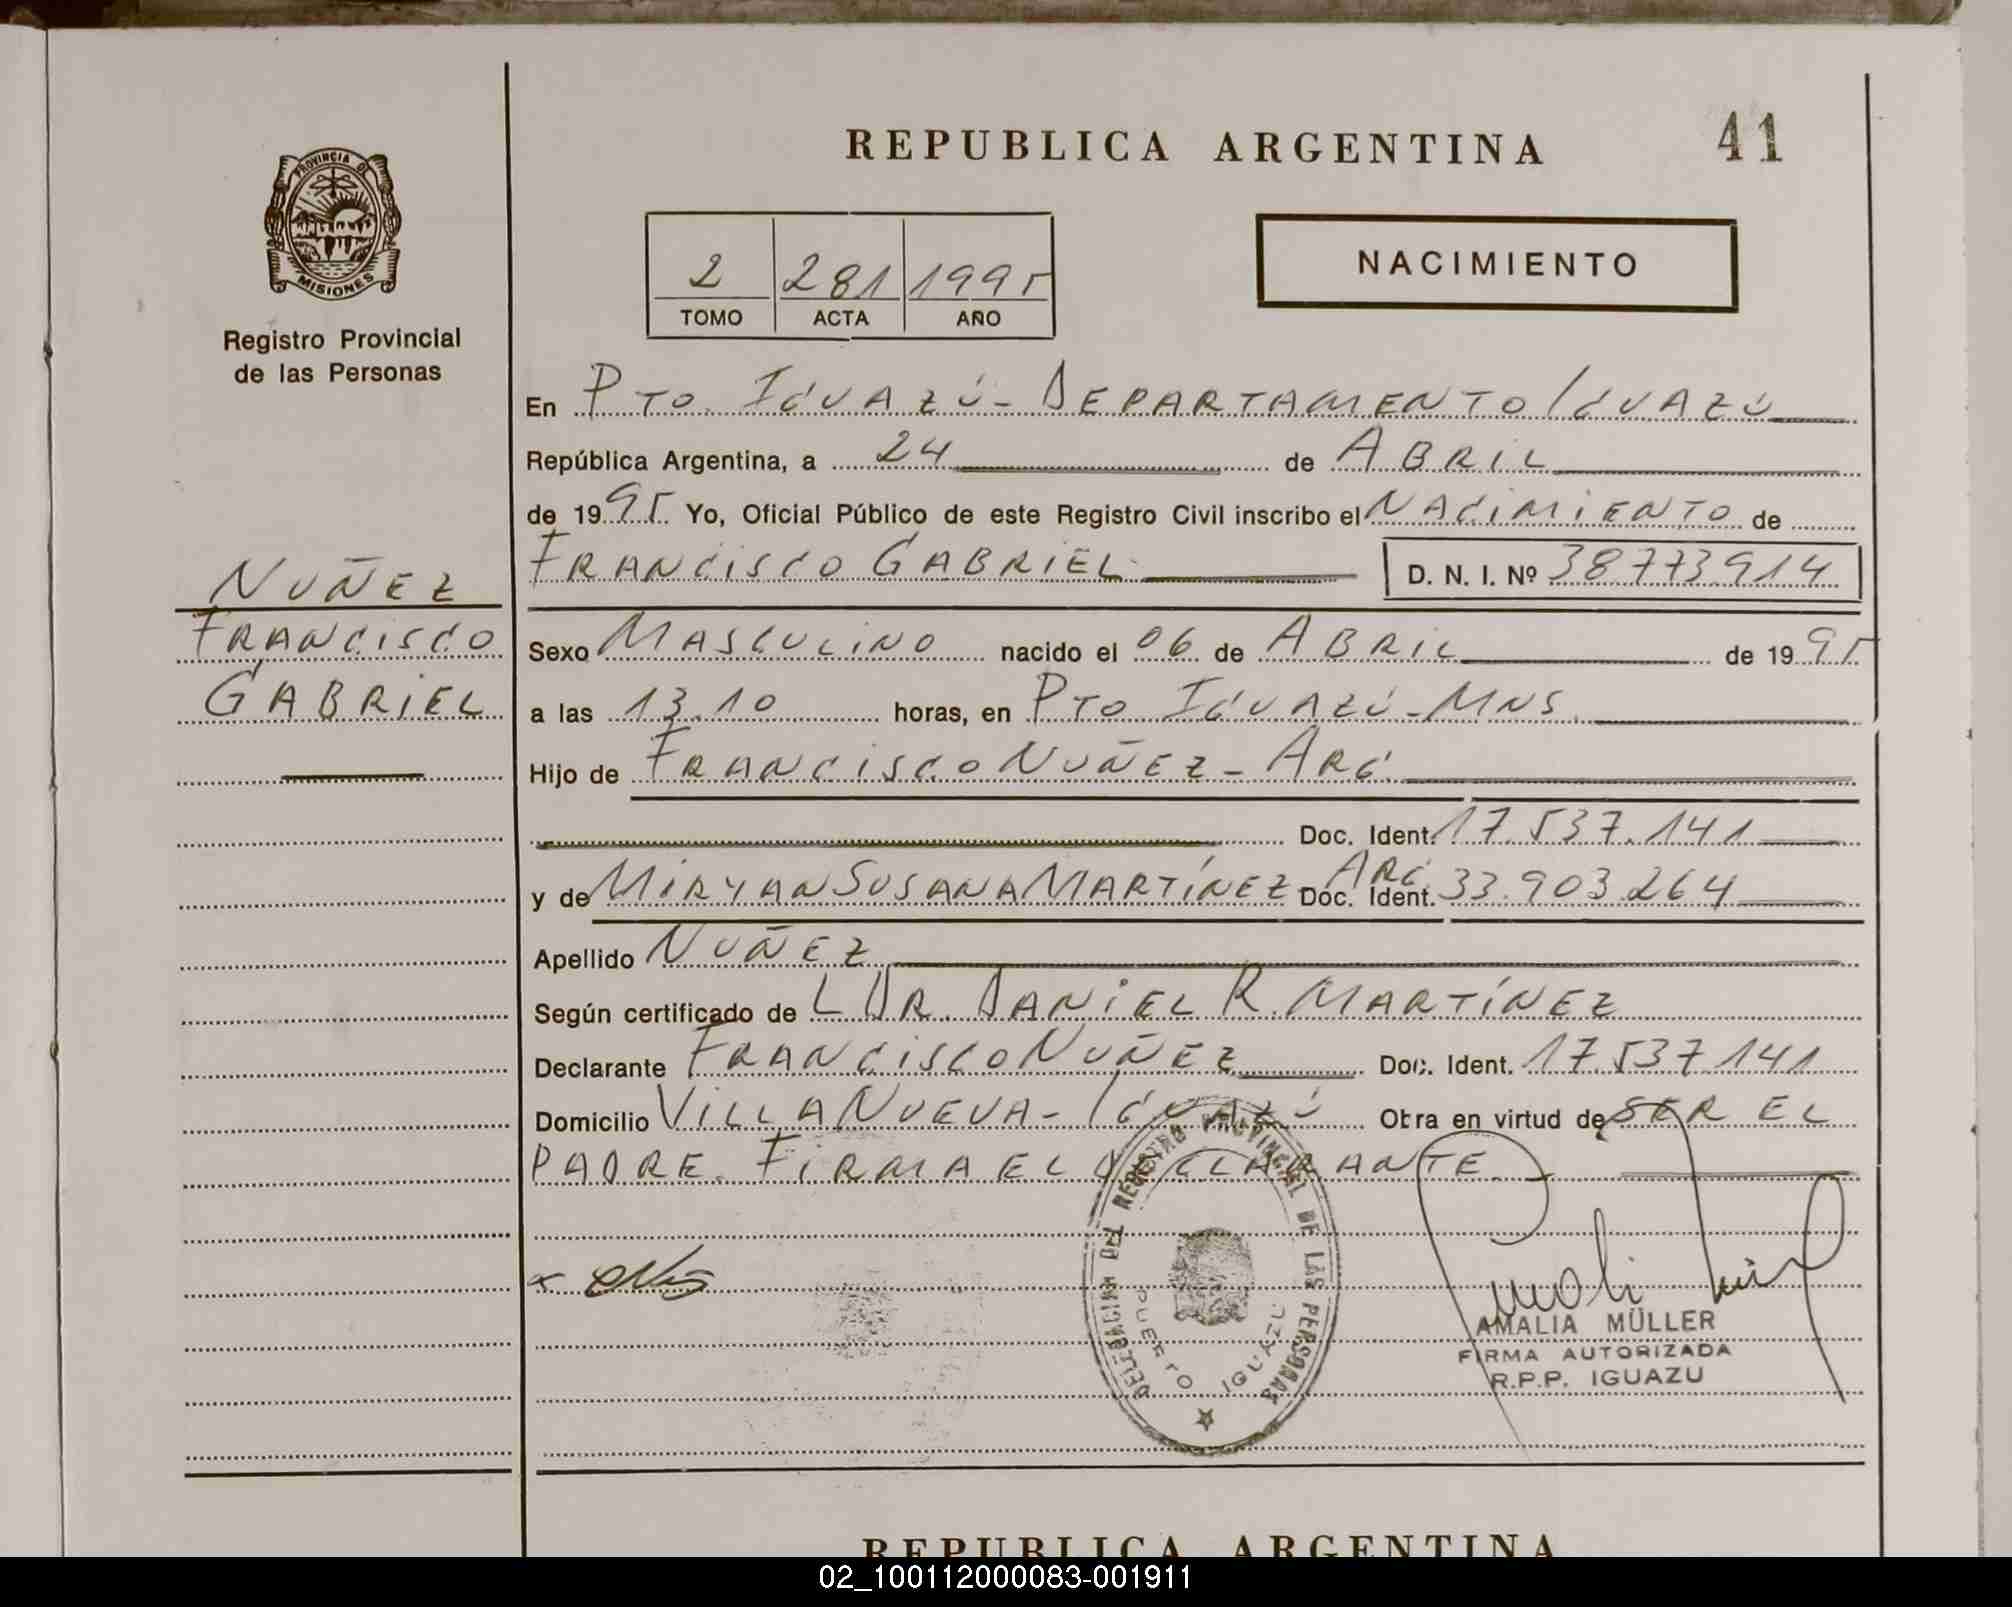 41
REPUBLICA ARGENTINA
PROVINCIA DE
MISIONES
Registro Provincial
de las Personas
2 281 1995
TOMO ACTA AÑO
NACIMIENTO
En PTO. IGUAZÚ - DEPARTAMENTO IGUAZÚ
República Argentina, a 24 de ABRIL
de 1995 Yo, Oficial Público de este Registro Civil inscribo el NACIMIENTO de
FRANCISCO GABRIEL D. N. I. Nº 38773914
NUÑEZ
FRANCISCO
GABRIEL
Sexo MASCULINO nacido el 06 de ABRIL de 1995
a las 13.10 horas, en PTO. IGUAZÚ - MNS.
Hijo de FRANCISCO NUÑEZ - ARG.
Doc. Ident. 17.537.141
y de MIRYAN SUSANA MARTÍNEZ - ARG Doc. Ident. 33.903.264
Apellido NUÑEZ
Según certificado de L DR. DANIEL R. MARTÍNEZ
Declarante FRANCISCO NUÑEZ Doc. Ident. 17.537.141
Domicilio VILLA NUEVA - IGUAZÚ Obra en virtud de SER EL
PADRE. FIRMA EL DECLARANTE
DELEGACION DEL REGISTRO PROVINCIAL DE LAS PERSONAS
PUERTO IGUAZU
AMALIA MÜLLER
FIRMA AUTORIZADA
R.P.P. IGUAZU
REPUBLICA ARGENTINA
02_100112000083-001911